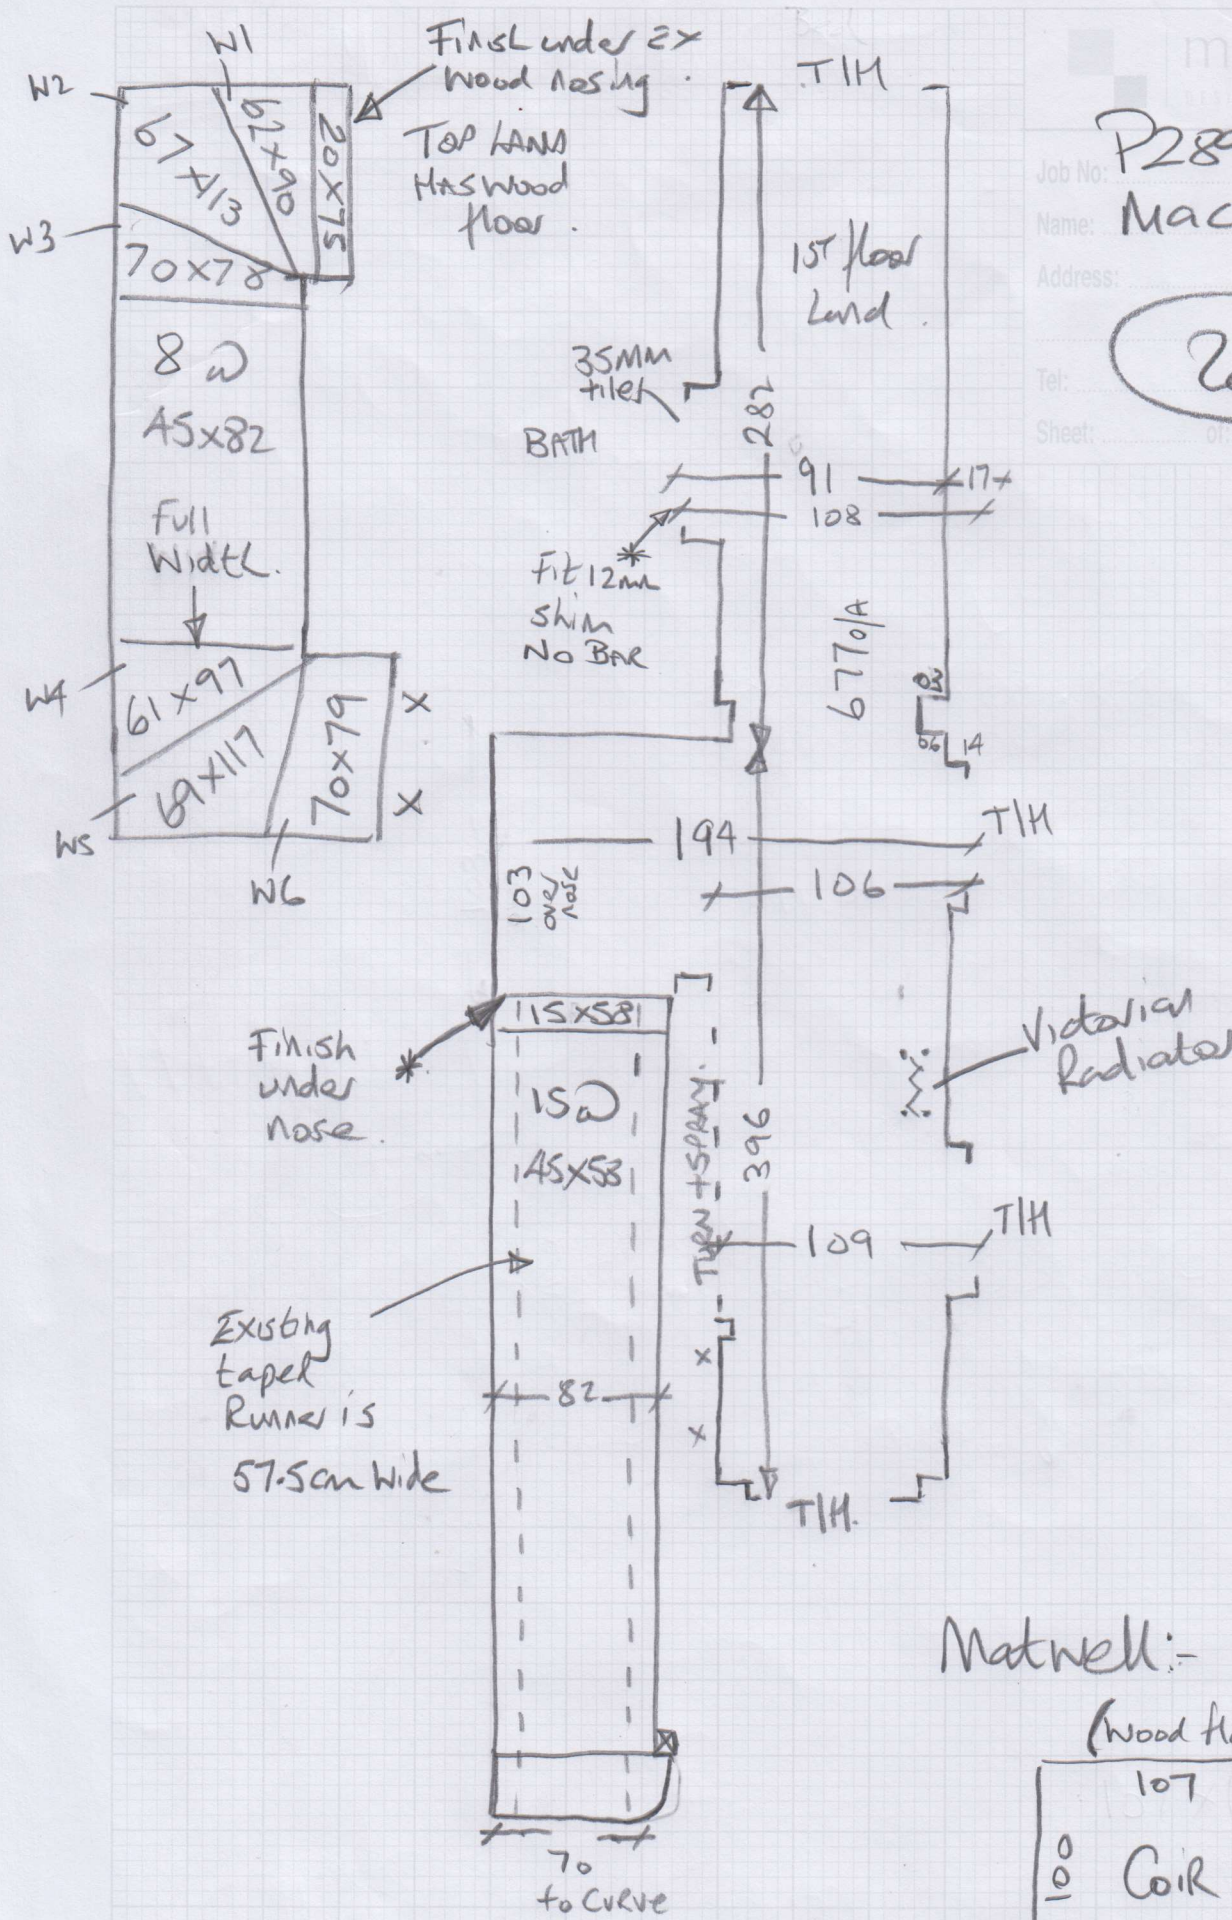 W1
W2
Finish under Ex
Wood nosing.
67x113
62x90
20x75
TOP LAND
HAS Wood
floor.
W3
70x78
8 @
45x82
Full
Width.
W4
61x97
69x117
70x79
X
X
W5
W6
T/H
1ST floor
Land.
35MM
tiles
BATH
282
91
17
108
Fit 12mm
Shim
No BAR
677 o/A
14
194
T/H
106
103
over
nose
15x58
Finish
under
nose.
15 @
45x53
TURN + SPRAY.
396
Victorian
Radiator
109
T/H
Existing
taped
Runner is
57.5cm Wide
82
x
x
T/H.
70
to CURVE
Job No:
Name: Mac
Address:
Tel:
Sheet: of:
Matwell:-
(Wood
107
100
COIR